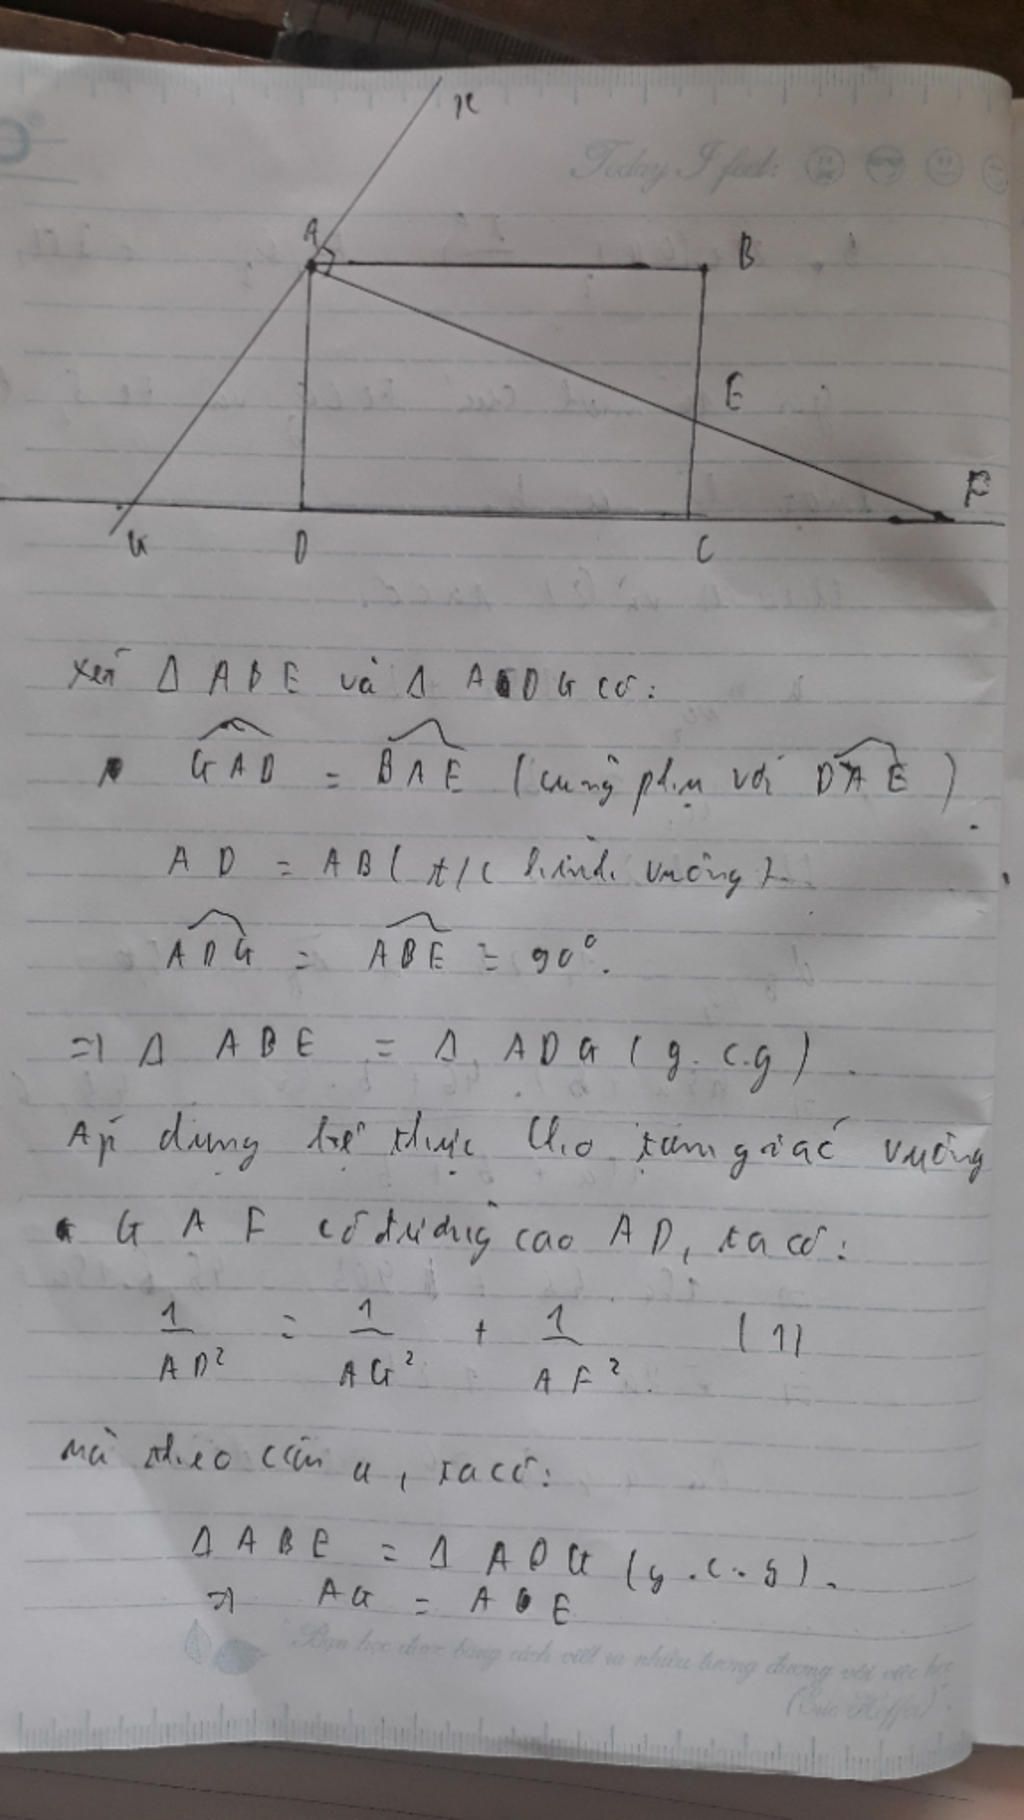 x
Today I feel:
A
B
E
F
G
D
C
xét Δ ABE và Δ ADG có:
GAD = BAE (cùng phụ với DAE).
AD = AB (t/c hình vuông).
ADG = ABE = 90°.
=> Δ ABE = Δ ADG (g.c.g).
Áp dụng hệ thức cho tam giác vuông
GAF có đường cao AD, ta có:
1/AD² = 1/AG² + 1/AF² (1)
mà theo câu a, ta có:
Δ ABE = Δ ADG (g.c.g).
=> AG = AE
Bạn học được bằng cách viết ra nhiều tương đương với việc học
(Eric Hoffer)